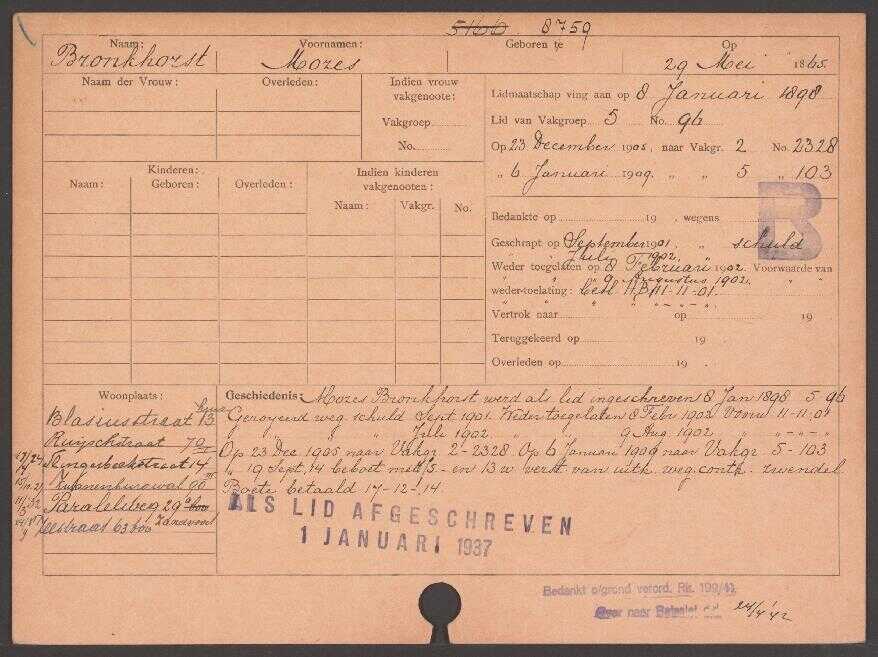 5166 8759
Naam: Voornamen: Geboren te Op
Bronkhorst Mozes 29 Mei 1865
Naam der Vrouw: Overleden:
Indien vrouw vakgenoote:
Vakgroep
No.
Kinderen:
Naam: Geboren: Overleden:
Indien kinderen vakgenooten:
Naam: Vakgr. No.
Lidmaatschap ving aan op 8 Januari 1898
Lid van Vakgroep 5 No. 96
Op 23 December 1905, naar Vakgr. 2 No. 2328
" 6 Januari 1909, " " 5 " 103
B
Bedankte op 19 , wegens
Geschrapt op September 1901 " schuld
" " Juli 1902. "
Weder toegelaten op 8 Februari 1902. Voorwaarde van
" " " 9 Augustus 1902. " "
weder-toelating: 11-11-01.
Vertrok naar op 19
Teruggekeerd op 19
Overleden op 19
Woonplaats:
Blasiusstraat 13
Ruijschstraat 70
straat 14
Zwanenburgwal
Parallelweg 29
straat 63 Zandvoort
Geschiedenis: Mozes Bronkhorst werd als lid ingeschreven 8 Jan 1898 5-96
Geroyeerd weg. schuld Sept 1901. Weder toegelaten 8 Febr 1902 Voorw 11-11-01
" " " Juli 1902 " " 9 Aug. 1902 " " - " - "
Op 23 Dec 1905 naar Vakgr 2-2328 Op 6 Januari 1909 naar Vakgr 5-103
" 19 Sept. 14 beboet met 5.- en 13 w verst van uitk weg. contr. zwendel
Boete betaald 17-12-'14.
ALS LID AFGESCHREVEN
1 JANUARI 1937
Bedankt o/grond verord. Rk. 199/41
Over naar 24/4 '42